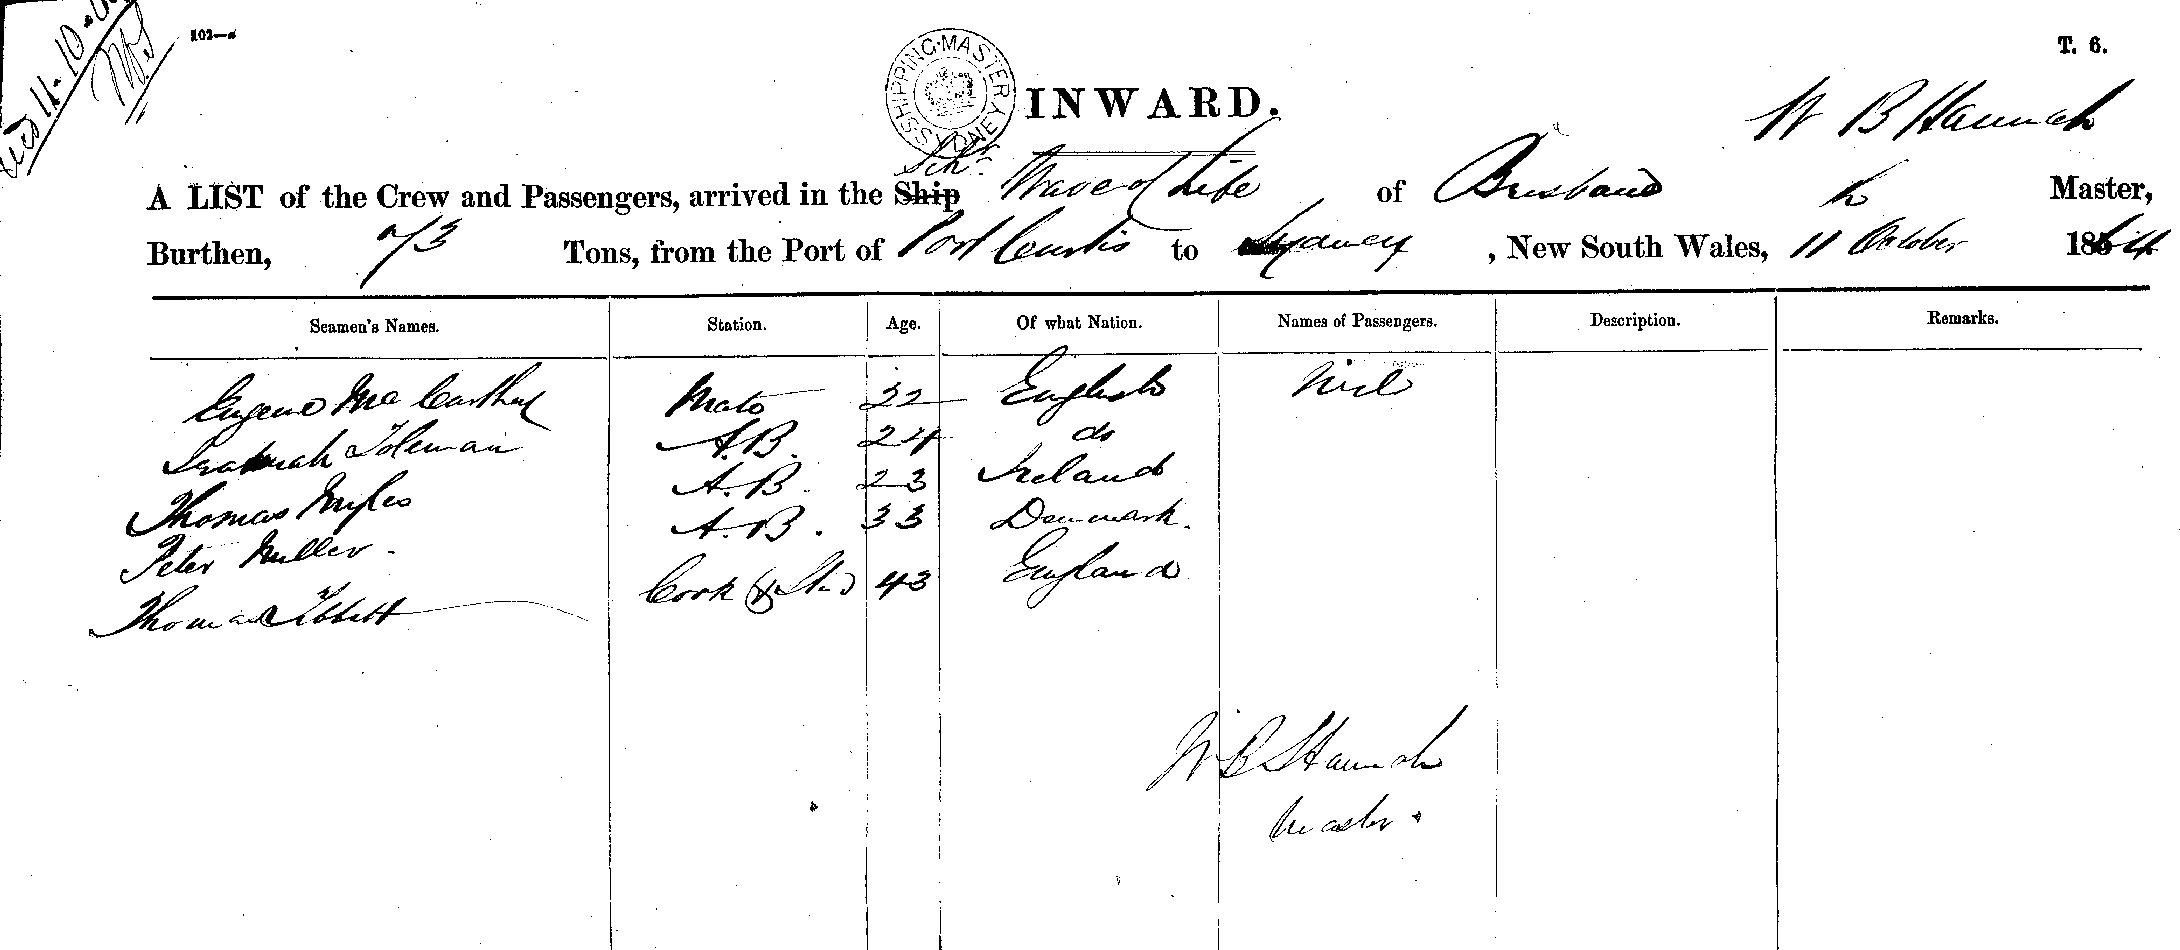 102—a
T. 6.
SHIPPING MASTER SYDNEY
INWARD.
W B Hannah
A LIST of the Crew and Passengers, arrived in the Ship Schr Wave of Life of Brisbane Master,
Burthen, 73 Tons, from the Port of Port Curtis to Sydney, New South Wales, 11 October 1864
Seamen's Names. Station. Age. Of what Nation. Names of Passengers. Description. Remarks.
Eugene McCarthy Mate 22 English Nil
Toleman A.B. 24 do
Thomas Myles A.B. 23 Ireland
Peter Miller A.B. 33 Denmark.
Thomas Ibbett Cook & Std 43 England
W B Hannah
Master.